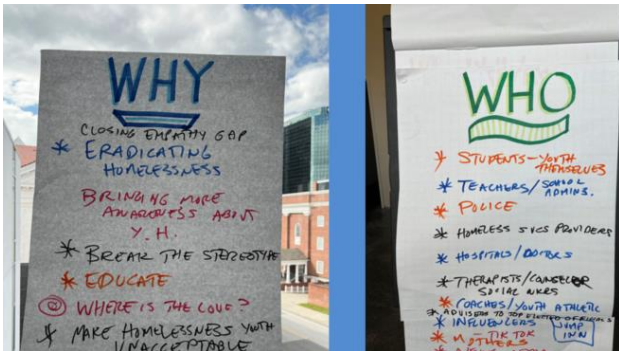 WHY
CLOSING EMPATHY GAP
* ERADICATING
HOMELESSNESS
BRINGING MORE
AWARENESS ABOUT
Y.H.
* BREAK THE STEREOTYPE
* EDUCATE
WHERE IS THE LOVE?
* MAKE HOMELESSNESS YOUTH
UNACCEPTABLE
WHO
* STUDENTS - YOUTH
THEMSELVES
* TEACHERS/SCHOOL
ADMINS.
* POLICE
* HOMELESS SVCS PROVIDERS
* HOSPITALS/DOCTORS
* THERAPISTS/COUNSELOR
SOCIAL WKRS
* COACHES/YOUTH ATHLETIC
* ADVISERS TO TOP ELECTED OFFICIALS
* INFLUENCERS
- TIK TOK
* MOTHERS
JUMP
INN